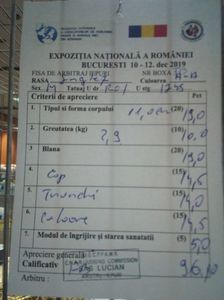 EXPOZIȚIA NAȚIONALĂ A ROMÂNIEI
BUCURESTI 10 - 12. dec 2019
FISA DE ARBITRAJ IEPURI NR BOXA
RASA Culoarea
Sex M Tatuaj U dr U stg
Criterii de apreciere Pct
1. Tipul si forma corpului (20) 19,0
2. Greutatea (kg) (10) 10.0
3. Blana (20) 19,0
4. Cap (15) 14,5
5. Trunchi (15) 14,5
6. Culoare (15) 14,5
7. Modul de îngrijire și starea sanatatii (5) 5,0
Apreciere generală
Calificativ 96,
Arbitru : LUCIAN